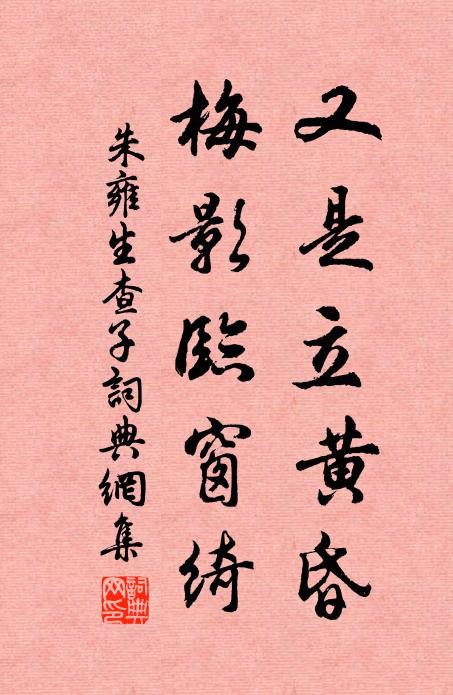 又是立黄昏
梅影臨窗綺
朱雍生查子詞典網集
詞典网印